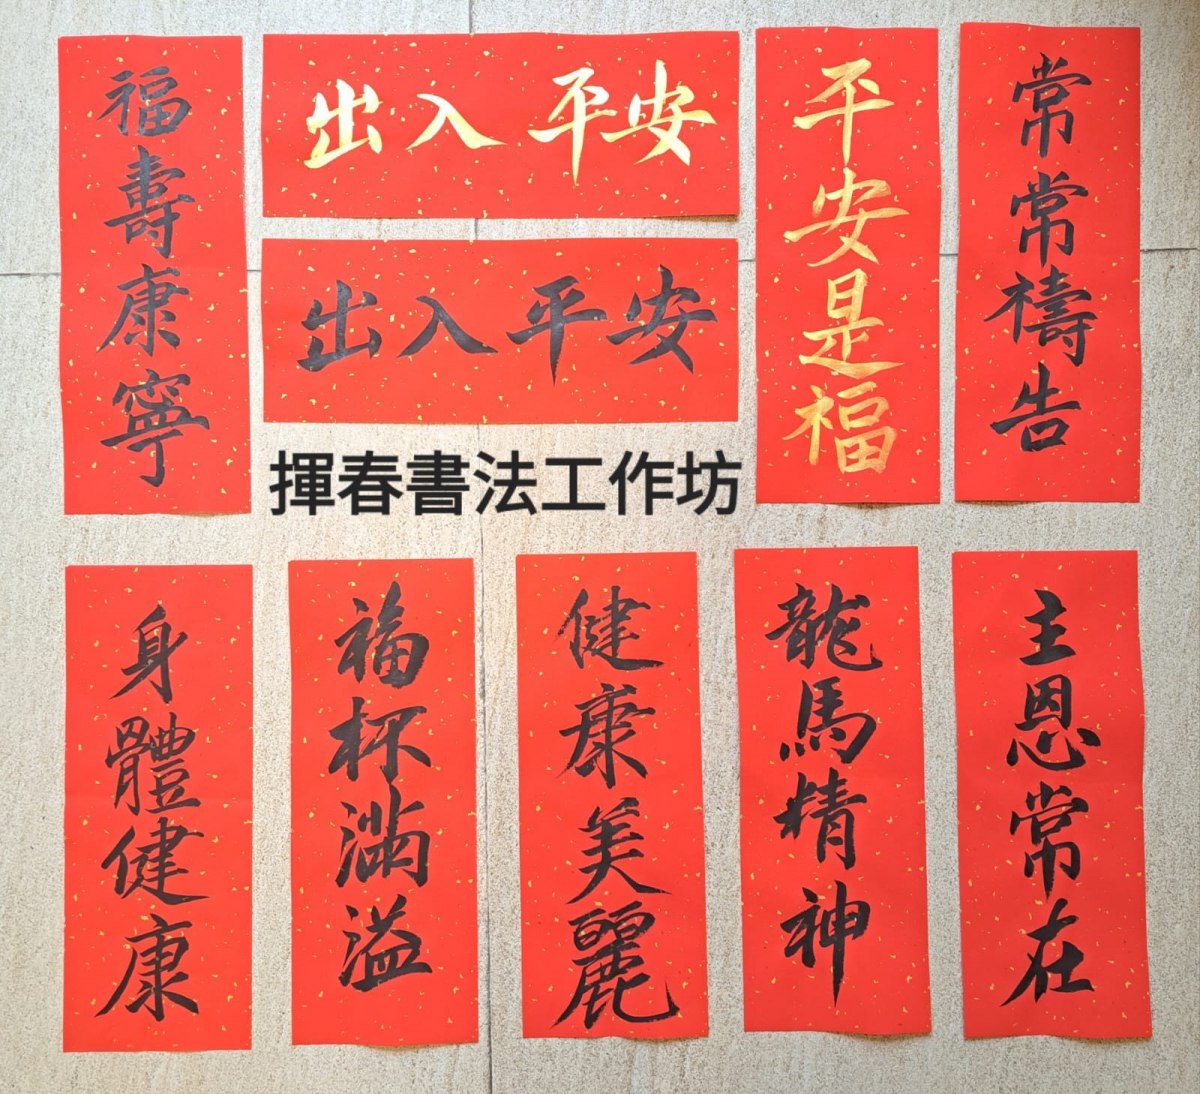 福壽康寧
出入平安
出入平安
平安是福
常常禱告
揮春書法工作坊
身體健康
福杯滿溢
健康美麗
龍馬精神
主恩常在